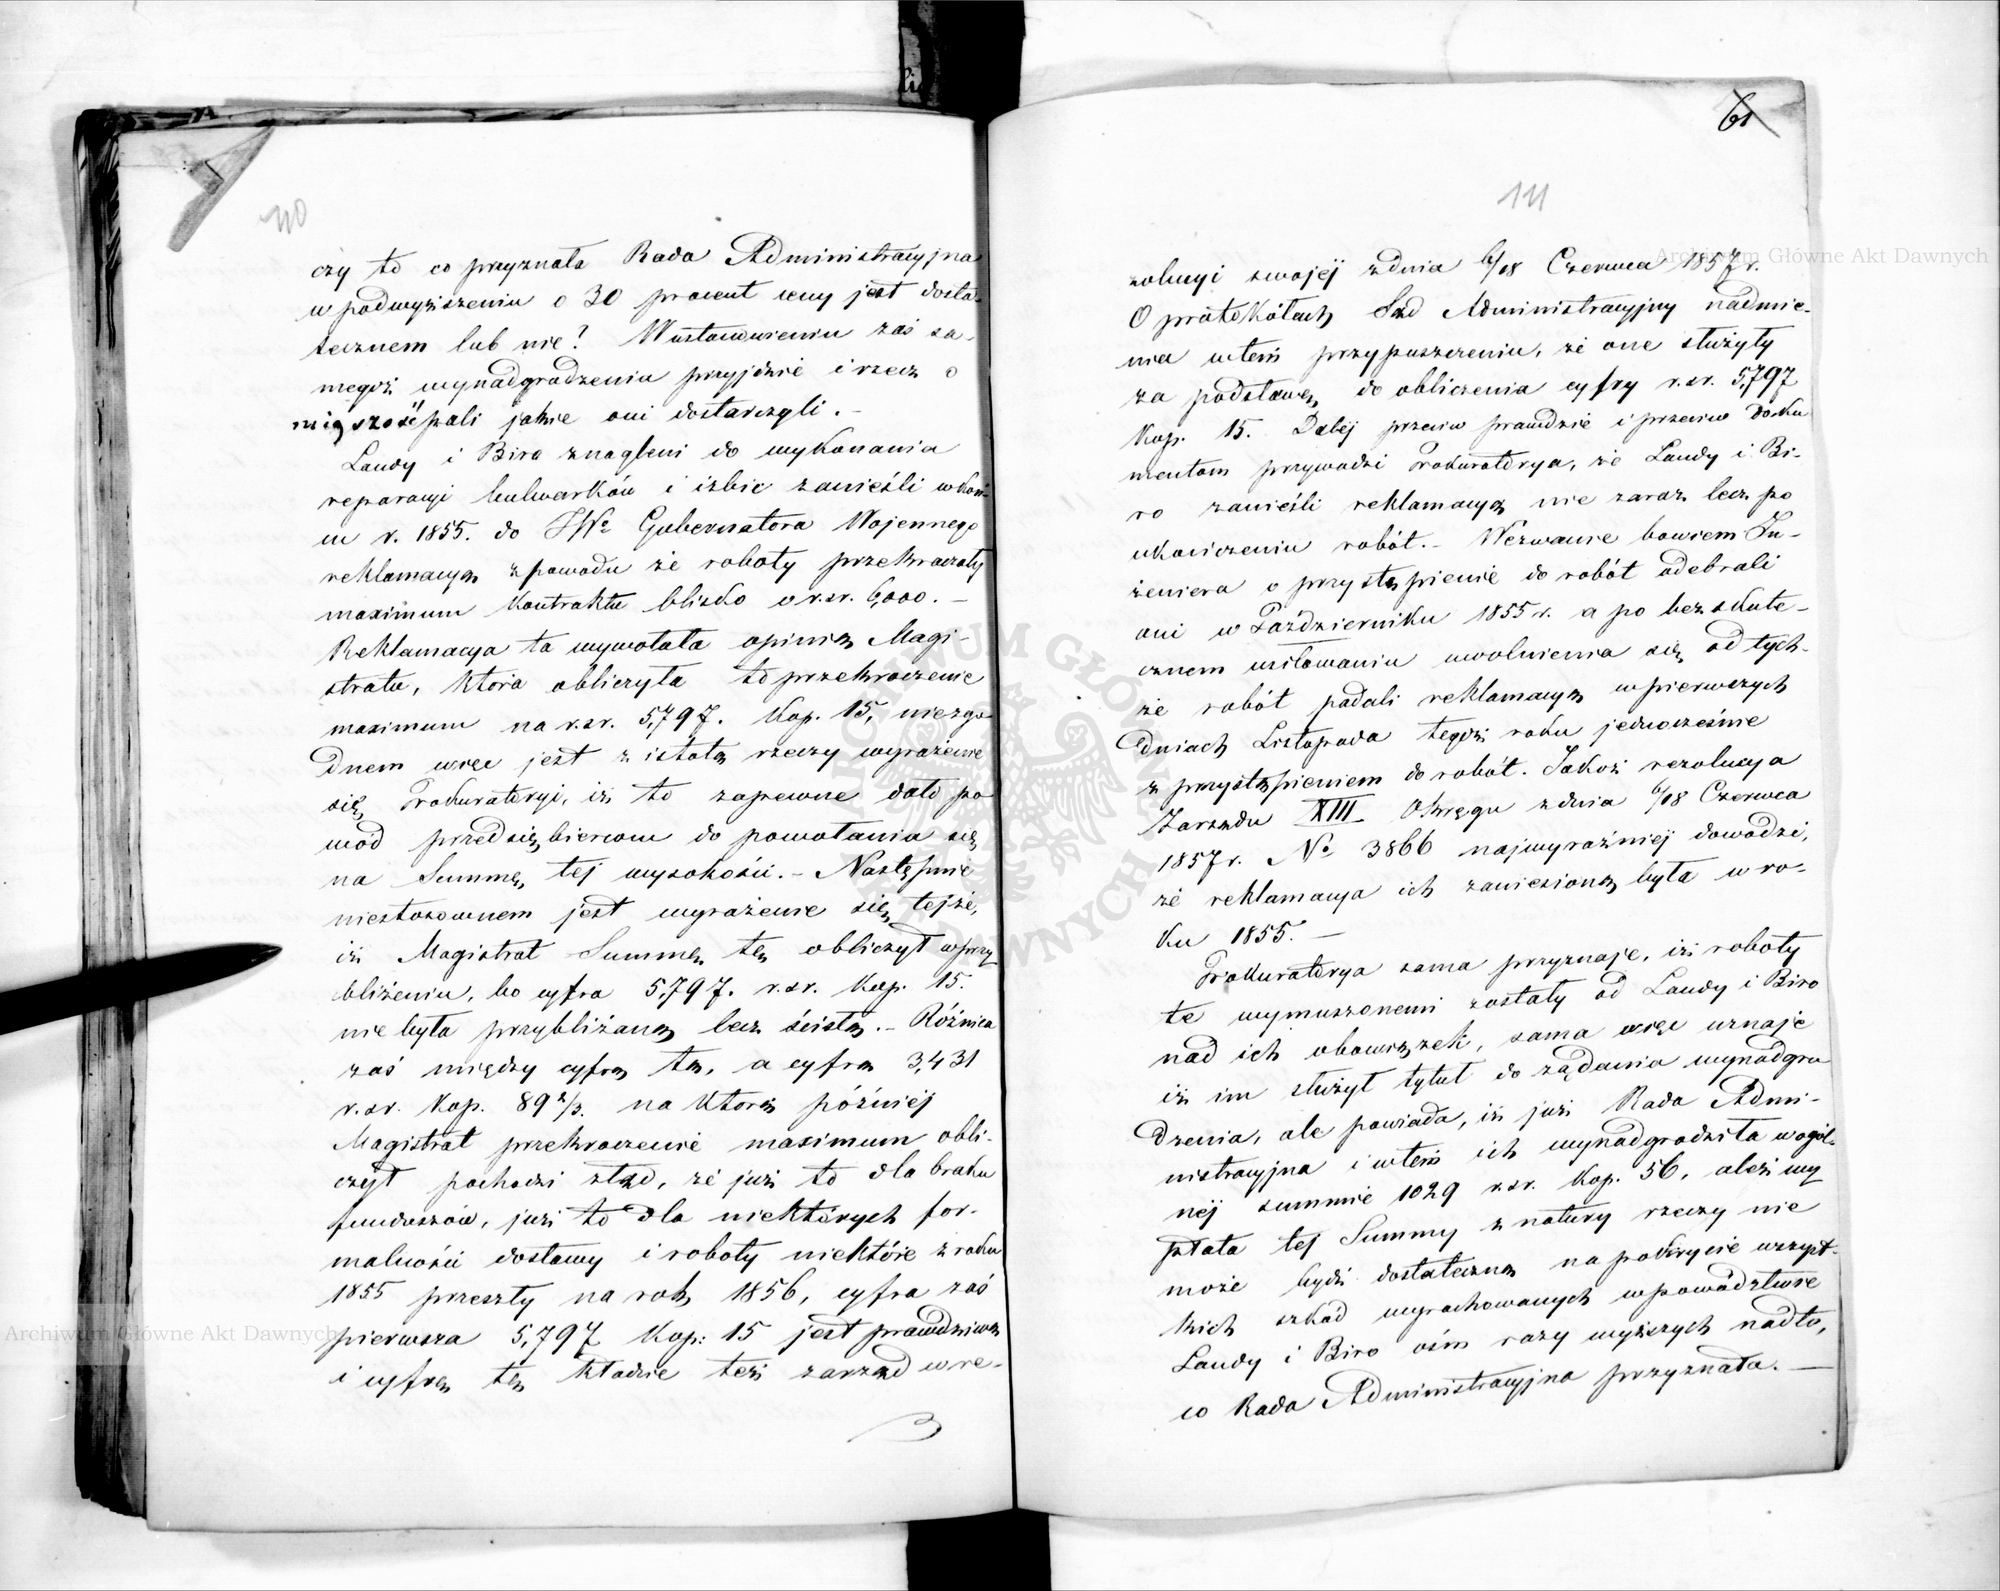 110
czy to co przyznała Rada Administracyjna
w podwyższeniu o 30 procent ceny jest dosta-
tecznem lub nie? W ustanowieniu zaś sa-
megoż wynadgrodzenia przyjdzie i rzecz o
miąższość pali jakie oni dostarczyli. –
Laudy i Biro znagleni do wykonania
reparacyi bulwarków i izbic zanieśli w koń-
cu r. 1855. do JWo Gubernatora Wojennego
reklamacyą z powodu że roboty przekraczały
maximum Kontraktu blisko o r.sr. 6,000. –
Reklamacya ta wywołała opinią Magi-
stratu, która obliczyła to przekroczenie
maximum na r.sr. 5,797. Kop. 15, niezgo-
dnem więc jest z istotą rzeczy wyrażenie
się Prokuratoryi, iż to zapewne dało po-
wód przedsiębiercom do powołania się
na Summę tej wysokości. – Następnie
niestosownem jest wyrażenie się tejże,
iż Magistrat Summę tę obliczył w przy
bliżeniu, bo cyfra 5,797. r.sr. Kop. 15.
nie była przybliżaną lecz ścisłą. – Różnica
zaś między cyfrą tą, a cyfrą 3,431
r.sr. Kop. 89 2/3. na którą później
Magistrat przekroczenie maximum obli-
czył pochodzi ztąd, że już to dla braku
funduszów, już to dla niektórych for-
malności dostawy i roboty niektóre z roku
1855 przeszły na rok 1856, cyfra zaś
pierwsza 5,797 Kop: 15 jest prawdziwą
i cyfrę tę kładzie też zarząd w re-
61
111
zolucyi swojej z dnia 6/18 Czerwca 1857 r.
O protokółach Sąd Administracyjny nadmie-
nia w tem przypuszczeniu, że one służyły
za podstawę do obliczenia cyfry r.sr. 5,797
Kop. 15. Dalej przeciw prawdzie i przeciw doku
mentom przywodzi Prokuratorya, że Laudy i Bi-
ro zanieśli reklamacyą nie zaraz lecz po
ukończeniu robót. – Wezwanie bowiem In-
żeniera o przystąpienie do robót odebrali
oni w Październiku 1855 r. a po bezskute-
cznem usiłowaniu uwolnienia się od tych-
że robót podali reklamacyą w pierwszych
dniach Listopada tegoż roku jednocześnie
z przystąpieniem do robót. Jakoż rezolucya
Zarządu XIII Okręgu z dnia 6/18 Czerwca
1857 r. No 3866 najwyraźniej dowodzi,
że reklamacya ich zaniesioną była w ro-
ku 1855. –
Prokuratorya sama przyznaje, iż roboty
te wymuszonemi zostały od Laudy i Biro
nad ich obowiązek, sama więc uznaje
iż im służył tytuł do żądania wynadgro
dzenia, ale powiada, iż już Rada Admi-
nistracyjna i w tem ich wynadgrodziła w ogól-
nej summie 1029 r.sr. Kop. 56, ależ wy
płata tej Summy z natury rzeczy nie
może bydź dostateczną na pokrycie wszyst-
kich szkód wyrachowanych w powództwie
Laudy i Biro ośm razy wyższych nad to,
co Rada Administracyjna przyznała. –
Archiwum Główne Akt Dawnych
Archiwum Główne Akt Dawnych
ARCHIWUM GŁÓWNE AKT DAWNYCH